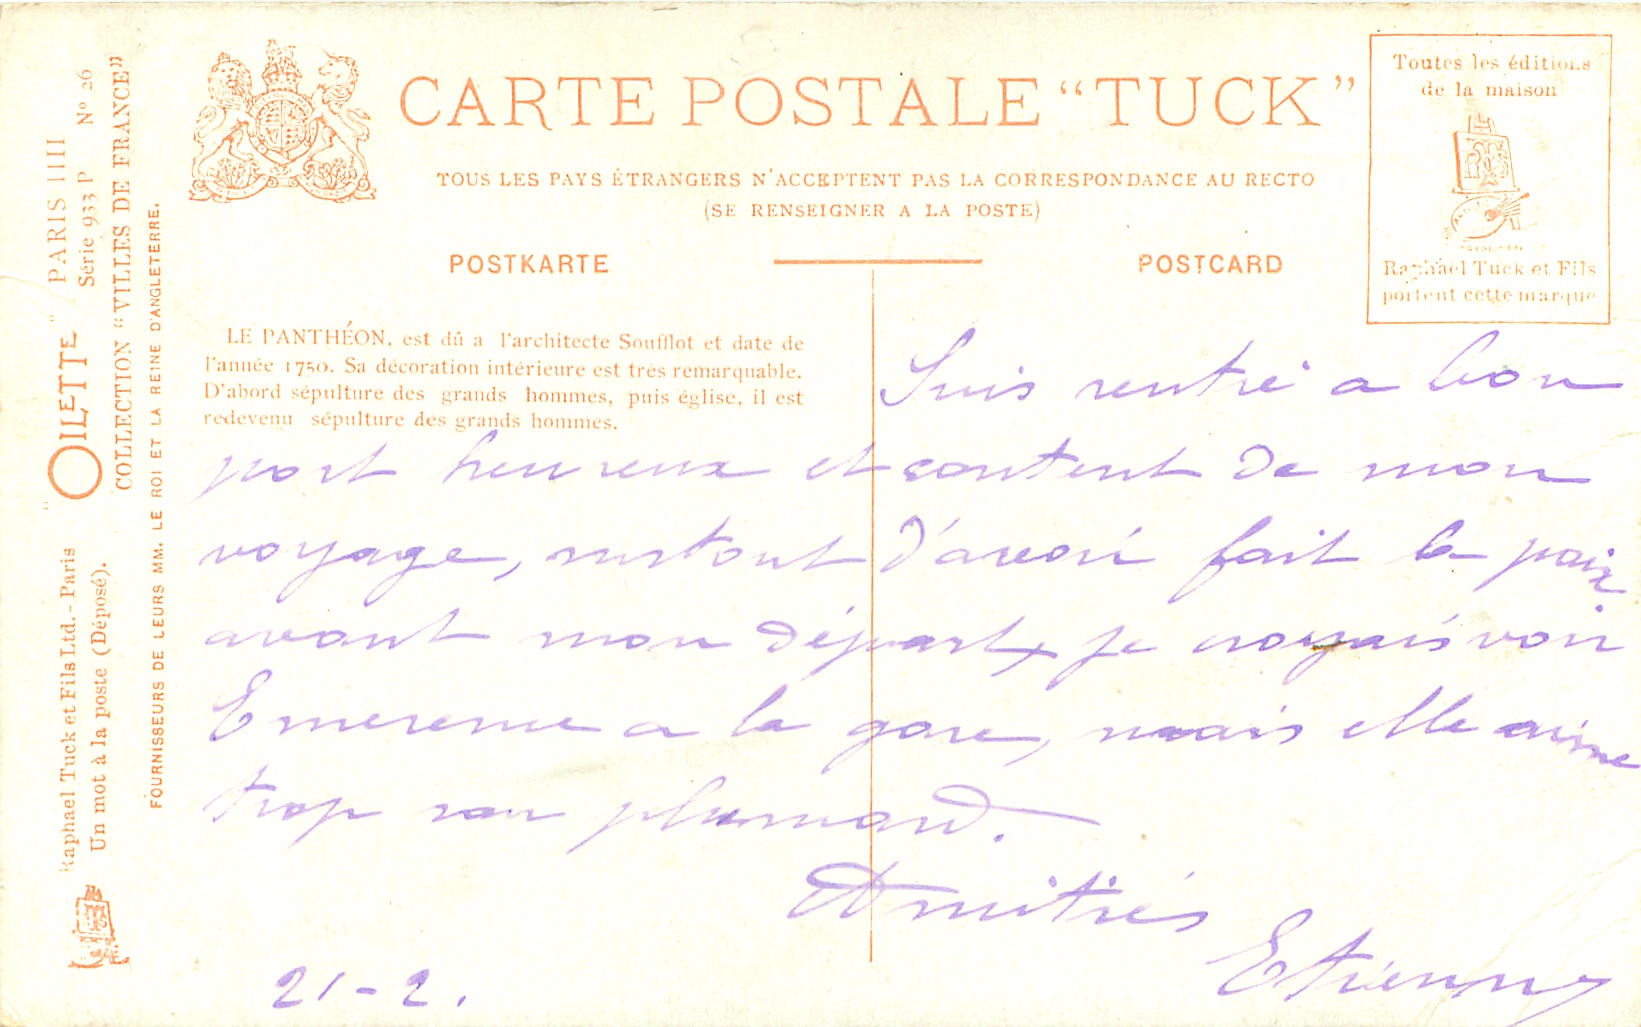 CARTE POSTALE “TUCK”
TOUS LES PAYS ÉTRANGERS N'ACCEPTENT PAS LA CORRESPONDANCE AU RECTO
(SE RENSEIGNER A LA POSTE)
POSTKARTE
POSTCARD
Toutes les éditions
de la maison
Raphael Tuck et Fils
portent cette marque
"OILETTE" PARIS IIII
Série 933 P Nº 26
COLLECTION “VILLES DE FRANCE”
FOURNISSEURS DE LEURS MM. LE ROI ET LA REINE D'ANGLETERRE.
Raphael Tuck et Fils Ltd. - Paris
Un mot à la poste (Déposé).
LE PANTHÉON, est dû a l'architecte Soufflot et date de
l'année 1750. Sa décoration intérieure est tres remarquable.
D'abord sépulture des grands hommes, puis église, il est
redevenu sépulture des grands hommes.
Suis rentré a bon
port heureux et content de mon
voyage, surtout d'avoir fait la paix
avant mon départ, je croyais voir
Emerence a la gare, mais elle aime
trop son plumard.
Amitiés
Etienne
21-2.